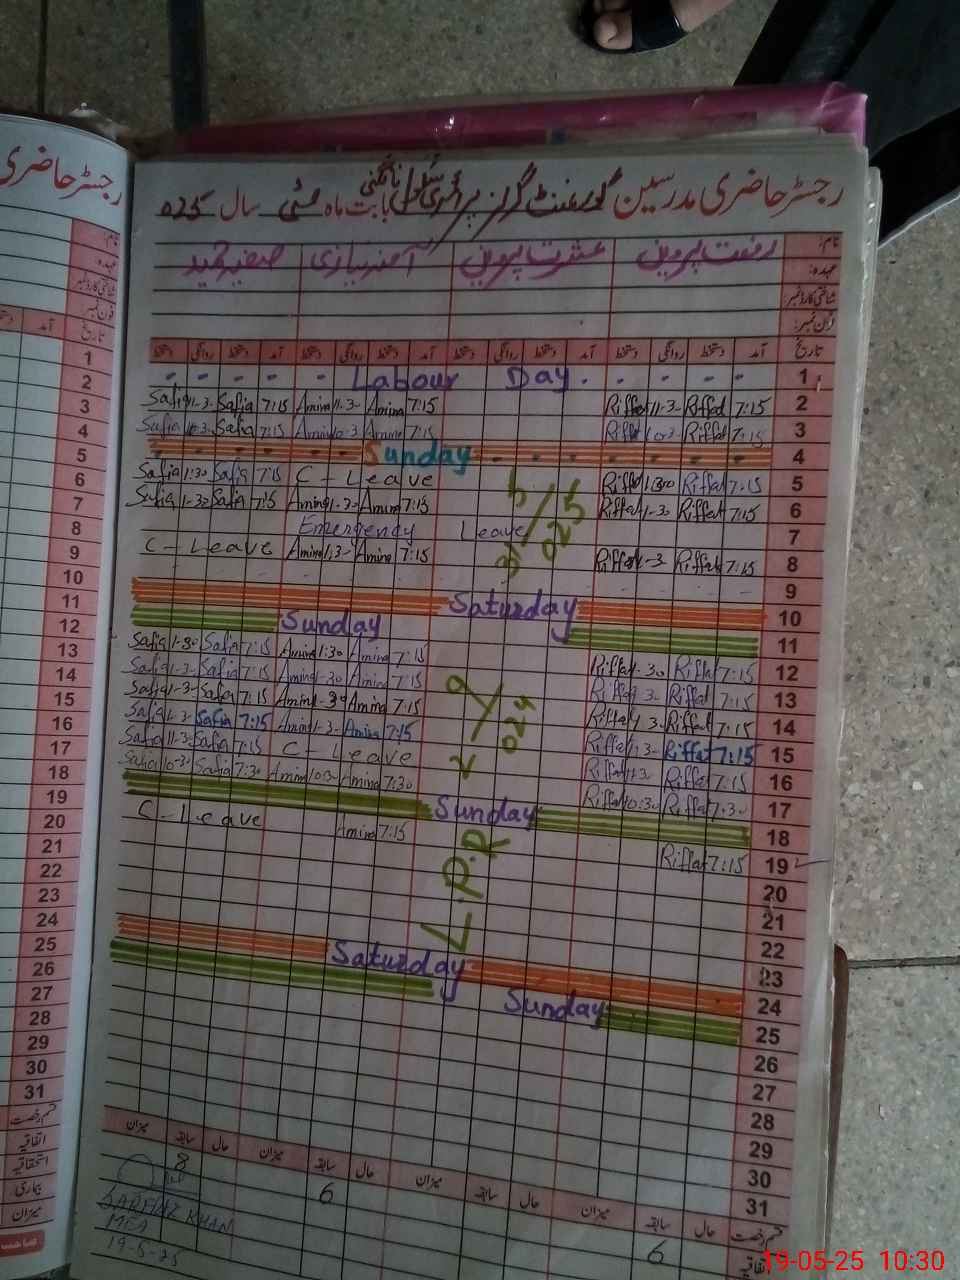 رجسٹر حاضری مدرسین گورنمنٹ گرلز پرائمری سکول بابت ماہ مئی سال 025
رجسٹر حاضری
نام:
رفعت پروین عشرت پروین آمنہ نیازی صفیہ حمید
عہدہ:
شناختی کارڈ نمبر:
فون نمبر:
تاریخ آمد دستخط روانگی دستخط آمد دستخط روانگی دستخط آمد دستخط روانگی دستخط آمد دستخط روانگی دستخط
Labour Day 1
Safia 11-3- Safia 7:15 Amina 11-3- Amina 7:15 Riffat 11-3- Riffat 7:15 2
Safia 10:3- Safia 7:15 Amina 10:3- Amina 7:15 Riffat 10:3- Riffat 7:15 3
Sunday 4
Safia 1:30 Safia 7:15 C - Leave Riffat 1:30 Riffat 7:15 5
Safia 1-30 Safia 7:15 Amina 1-3- Amina 7:15 Riffat 1-30 Riffat 7:15 6
Emergency Leave 7
C - Leave Amina 1:3- Amina 7:15 Riffat 1-3- Riffat 7:15 8
31/5/025
9
Saturday 10
Sunday 11
Safia 1-30 Safia 7:15 Amina 1:30 Amina 7:15 Riffat 1-30 Riffat 7:15 12
Safia 1-3- Safia 7:15 Amina 1-30 Amina 7:15 Riffat 1-3- Riffat 7:15 13
Safia 1-3- Safia 7:15 Amina 1-30 Amina 7:15 Riffat 1-3- Riffat 7:15 14
Safia 1-3- Safia 7:15 Amina 1-3- Amina 7:15 Riffat 1-3- Riffat 7:15 15
Safia 11-3- Safia 7:15 C - Leave Riffat 11-3- Riffat 7:15 16
Safia 10-30 Safia 7:30 Amina 10:3- Amina 7:30 Riffat 10:30 Riffat 7:30 17
2/9/024
Sunday 18
C - Leave Amina 7:15 Riffat 7:15 19
L.P.R
20
21
22
23
Saturday 24
Sunday 25
26
27
28
29
30
31
قسم رخصت حال سابقہ میزان حال سابقہ میزان حال سابقہ میزان حال سابقہ میزان
اتفاقیہ 6 6 8
SARFRAZ KHAN
MEA
19-5-25
آمد تاریخ
1
2
3
4
5
6
7
8
9
10
11
12
13
14
15
16
17
18
19
20
21
22
23
24
25
26
27
28
29
30
31
قسم رخصت
اتفاقیہ
استحقاقیہ
بیماری
میزان
19-05-25 10:30